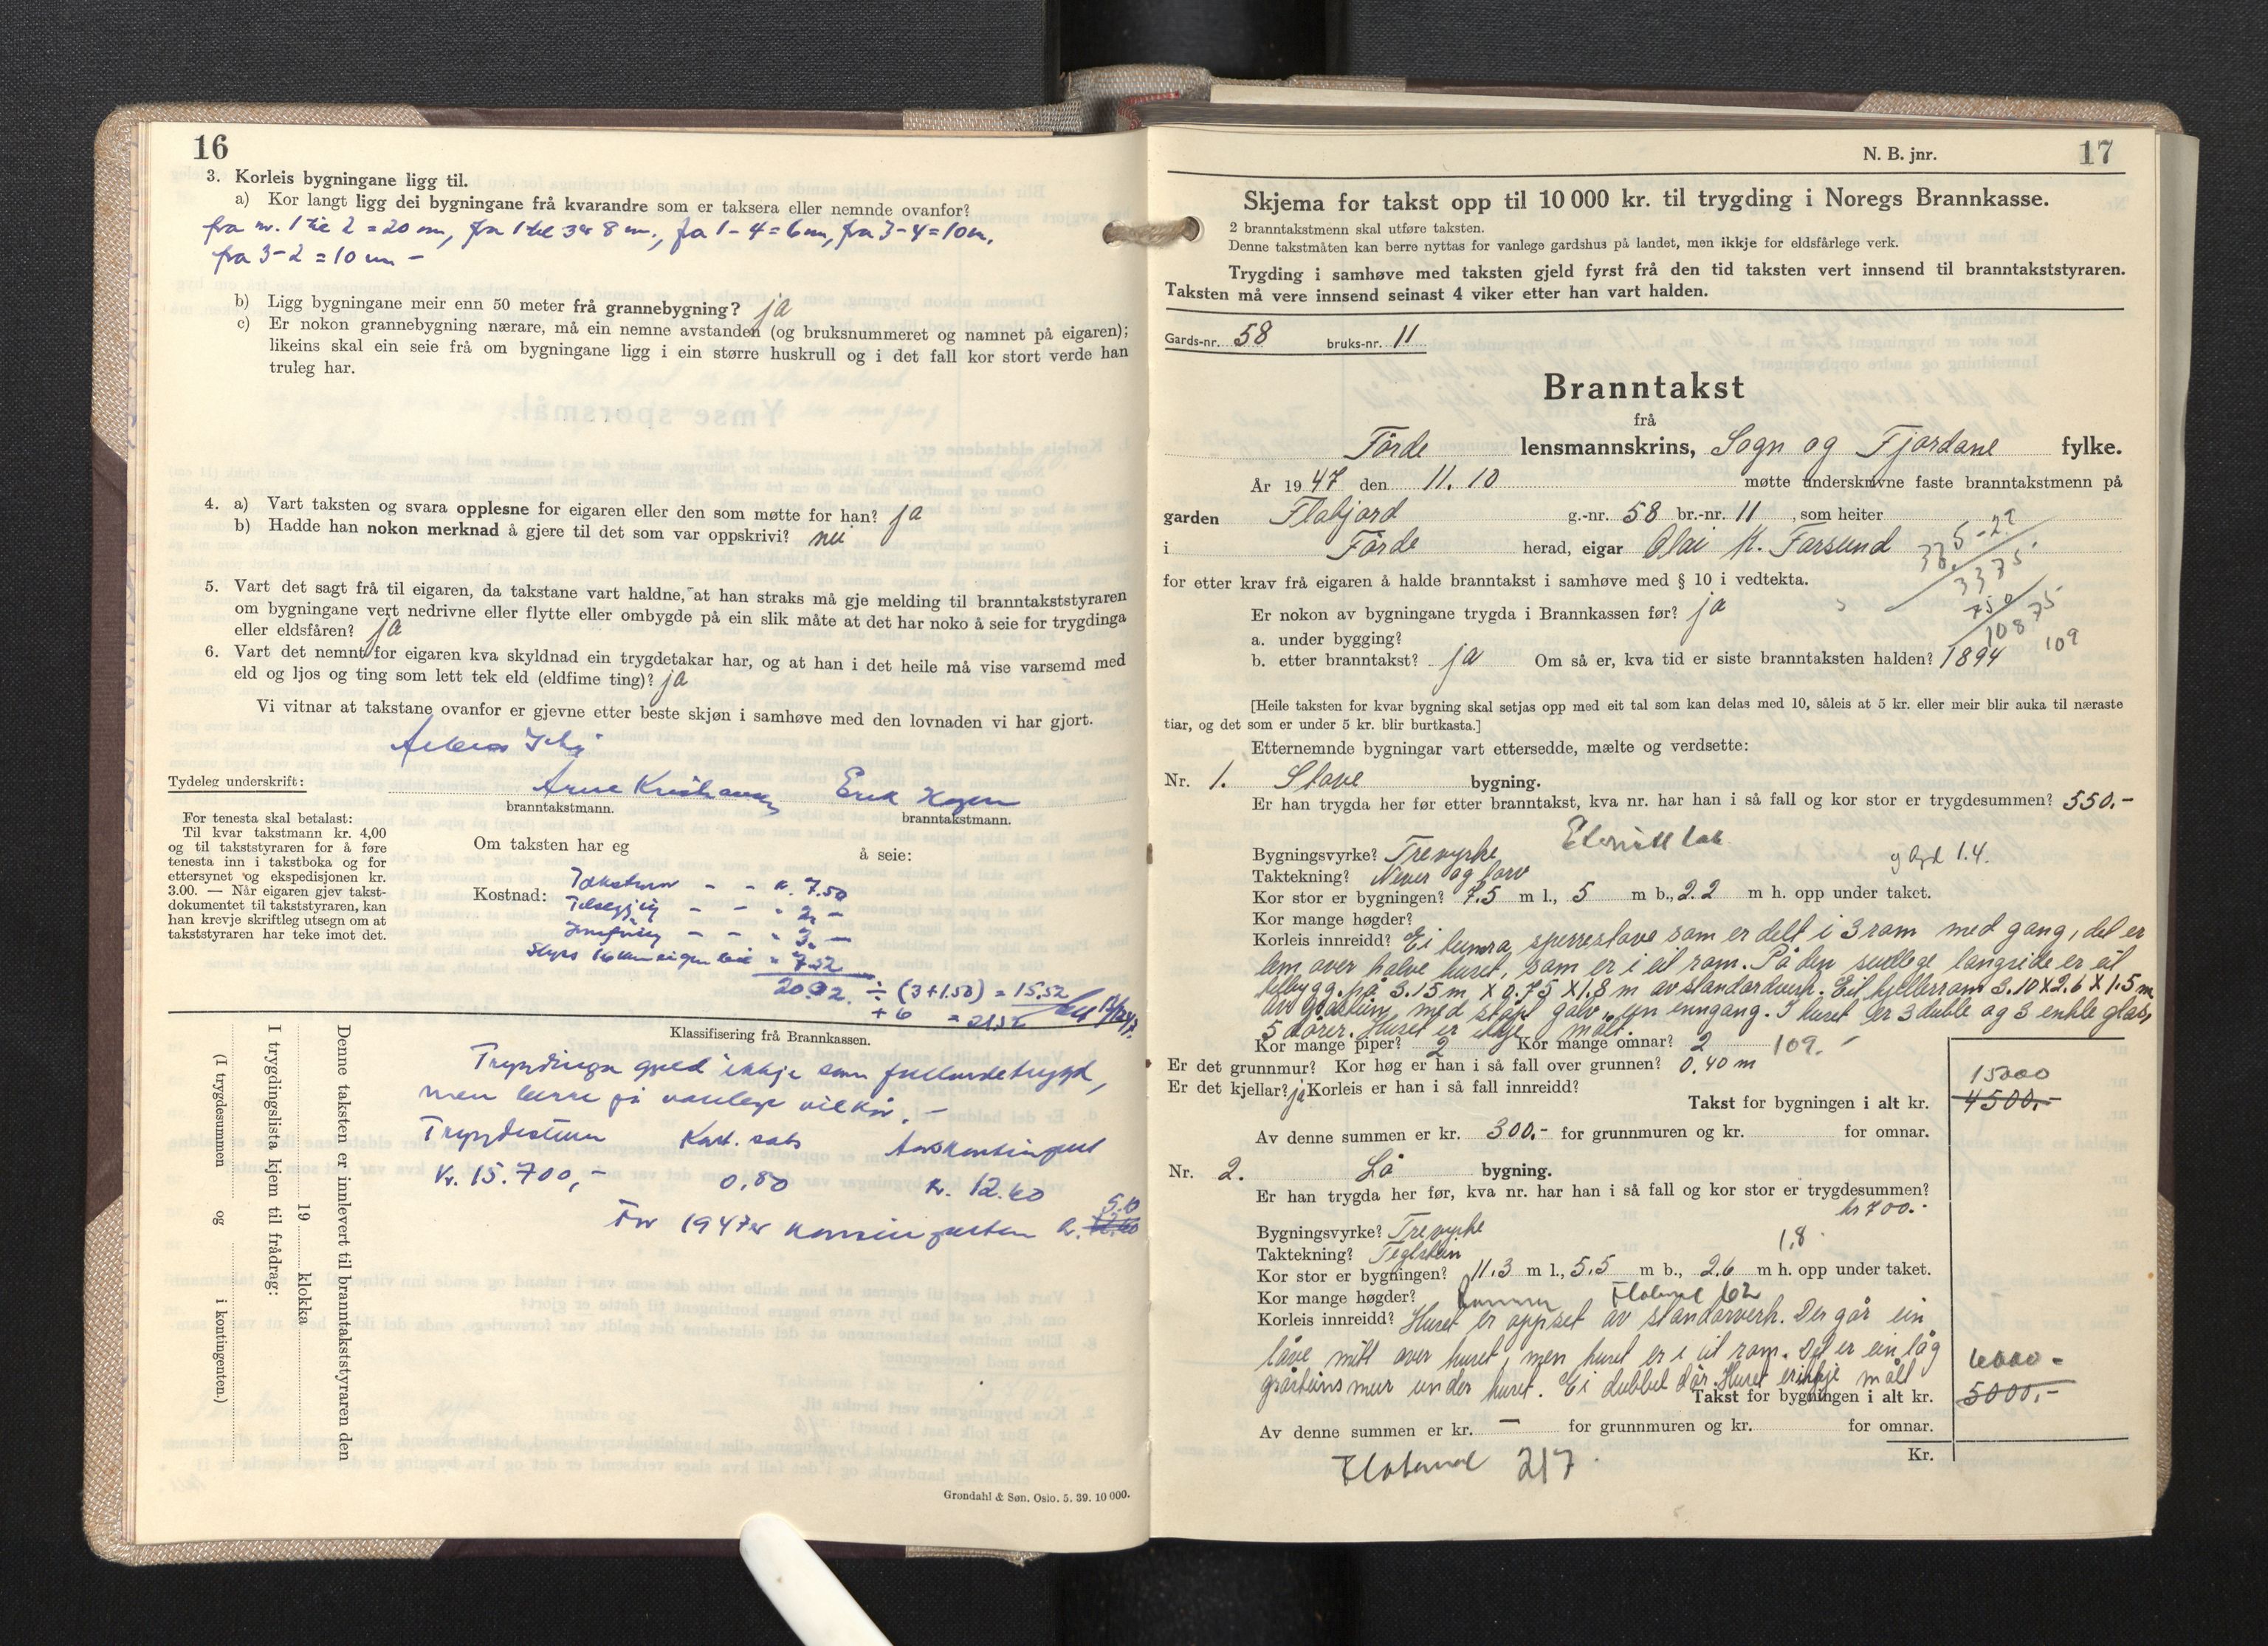 16
3. Korleis bygningane ligg til.
a) Kor langt ligg dei bygningane frå kvarandre som er taksera eller nemnde ovanfor?
fra nr. 1 til 2 = 20 m, fra 1 til 3 er 8 m, fra 1 - 4 = 6 m, fra 3 - 4 = 10 m,
fra 3 - 2 = 10 m -
b) Ligg bygningane meir enn 50 meter frå grannebygning? ja
c) Er nokon grannebygning nærare, må ein nemne avstanden (og bruksnummeret og namnet på eigaren);
likeins skal ein seie frå om bygningane ligg i ein større huskrull og i det fall kor stort verde han
truleg har.
4. a) Vart taksten og svara opplesne for eigaren eller den som møtte for han? ja
b) Hadde han nokon merknad å gjere til det som var oppskrivi? nei
5. Vart det sagt frå til eigaren, da takstane vart haldne, at han straks må gje melding til branntakststyraren
om bygningane vert nedrivne eller flytte eller ombygde på ein slik måte at det har noko å seie for trygdinga
eller eldsfåren? ja
6. Vart det nemnt for eigaren kva skyldnad ein trygdetakar har, og at han i det heile må vise varsemd med
eld og ljos og ting som lett tek eld (eldfime ting)? ja
Vi vitnar at takstane ovanfor er gjevne etter beste skjøn i samhøve med den lovnaden vi har gjort.
Tydeleg underskrift:
Arne Erik
branntakstmann. branntakstmann.
For tenesta skal betalast:
Til kvar takstmann kr. 4,00
og til takststyraren for å føre
tenesta inn i takstboka og for
ettersynet og ekspedisjonen kr.
3.00. — Når eigaren gjev takst-
dokumentet til takststyraren, kan
han krevje skriftleg utsegn om at
takststyraren har teke imot det.
Om taksten har eg å seie:
Kostnad:
kr. 7.50
" 2. -
" 3. -
" 7.52
20.02 ÷ (3+1.50) = 15.52
+ 6 = 21.52
Klassifisering frå Brannkassen.
Trygdinga gjeld ikkje som fullverdetrygd,
men berre på vanlege vilkår. -
Trygdesum Kont. sats Årskontingent
Kr. 15.700,- 0,80 Kr. 12.60
5.10
For 1947 er kontingenten kr. 12.60
Denne taksten er innlevert til branntakststyraren den
19 klokka
I trygdingslista kjem til frådrag:
(I trygdesummen og i kontingenten.)
Grøndahl & Søn. Oslo. 5. 39. 10 000.
N. B. jnr. 17
Skjema for takst opp til 10 000 kr. til trygding i Noregs Brannkasse.
2 branntakstmenn skal utføre taksten.
Denne takstmåten kan berre nyttas for vanlege gardshus på landet, men ikkje for eldsfårlege verk.
Trygding i samhøve med taksten gjeld fyrst frå den tid taksten vert innsend til branntakststyraren.
Taksten må vere innsend seinast 4 viker etter han vart halden.
Gards-nr. 58 bruks-nr. 11
Branntakst
frå
Förde lensmannskrins, Sogn og Fjordane fylke.
År 1947 den 11. 10 møtte underskrivne faste branntakstmenn på
garden Flabjord g.-nr. 58 br.-nr. 11, som heiter
i Förde herad, eigar Olai K. Farsund
3375
750
108 75
109
for etter krav frå eigaren å halde branntakst i samhøve med § 10 i vedtekta.
Er nokon av bygningane trygda i Brannkassen før? ja
a. under bygging?
b. etter branntakst? ja Om så er, kva tid er siste branntaksten halden? 1894
[Heile taksten for kvar bygning skal setjas opp med eit tal som kan delas med 10, såleis at 5 kr. eller meir blir auka til næraste
tiar, og det som er under 5 kr. blir burtkasta.]
Etternemnde bygningar vart ettersedde, mælte og verdsette:
Nr. 1. Stove bygning.
Er han trygda her før etter branntakst, kva nr. har han i så fall og kor stor er trygdesummen? 550.-
Eternitt tak
Bygningsvyrke? Trevyrke
Taktekning? Never og torv 1.4.
Kor stor er bygningen? 7.5 m l., 5 m b., 2.2 m h. opp under taket.
Kor mange høgder?
Korleis innreidd? Ei tømra sperrestova som er delt i 3 rom med gang, det er
lem over halve huset, som er i eit rom. På den sudlege langside er eit
tilbygg på 3.15 m x 0.75 x 1.8 m av standardverk. Eit kjellarrom 3.10 x 2.6 x 1.5 m
av gråstein med støpt golv, ein inngang. I huset er 3 duble og 3 enkle glas,
5 dører. Huset er ikkje målt.
Kor mange piper? 2 Kor mange omnar? 2 109. -
Er det grunnmur? Kor høg er han i så fall over grunnen? 0.40 m
Er det kjellar? ja Korleis er han i så fall innreidd?
15000
Takst for bygningen i alt kr. 4500.-
Av denne summen er kr. 300.- for grunnmuren og kr. for omnar.
Nr. 2. Lå bygning.
Er han trygda her før, kva nr. har han i så fall og kor stor er trygdesummen?
kr 700.-
Bygningsvyrke? Trevyrke 1,8
Taktekning? Teglstein
Kor stor er bygningen? 11.3 m l., 5.5 m b., 2.6 m h. opp under taket.
Kor mange høgder?
Korleis innreidd? Huset er oppset av standarverk. Der går ein
låve mitt over huset, men huset er i eit rom. Det er ein låg
gråsteins mur under huset. Ei dubbel dør. Huset er ikkje målt
6000 -
Takst for bygningen i alt kr. 5000.-
Av denne summen er kr. — for grunnmuren og kr. for omnar.
Kr.
217